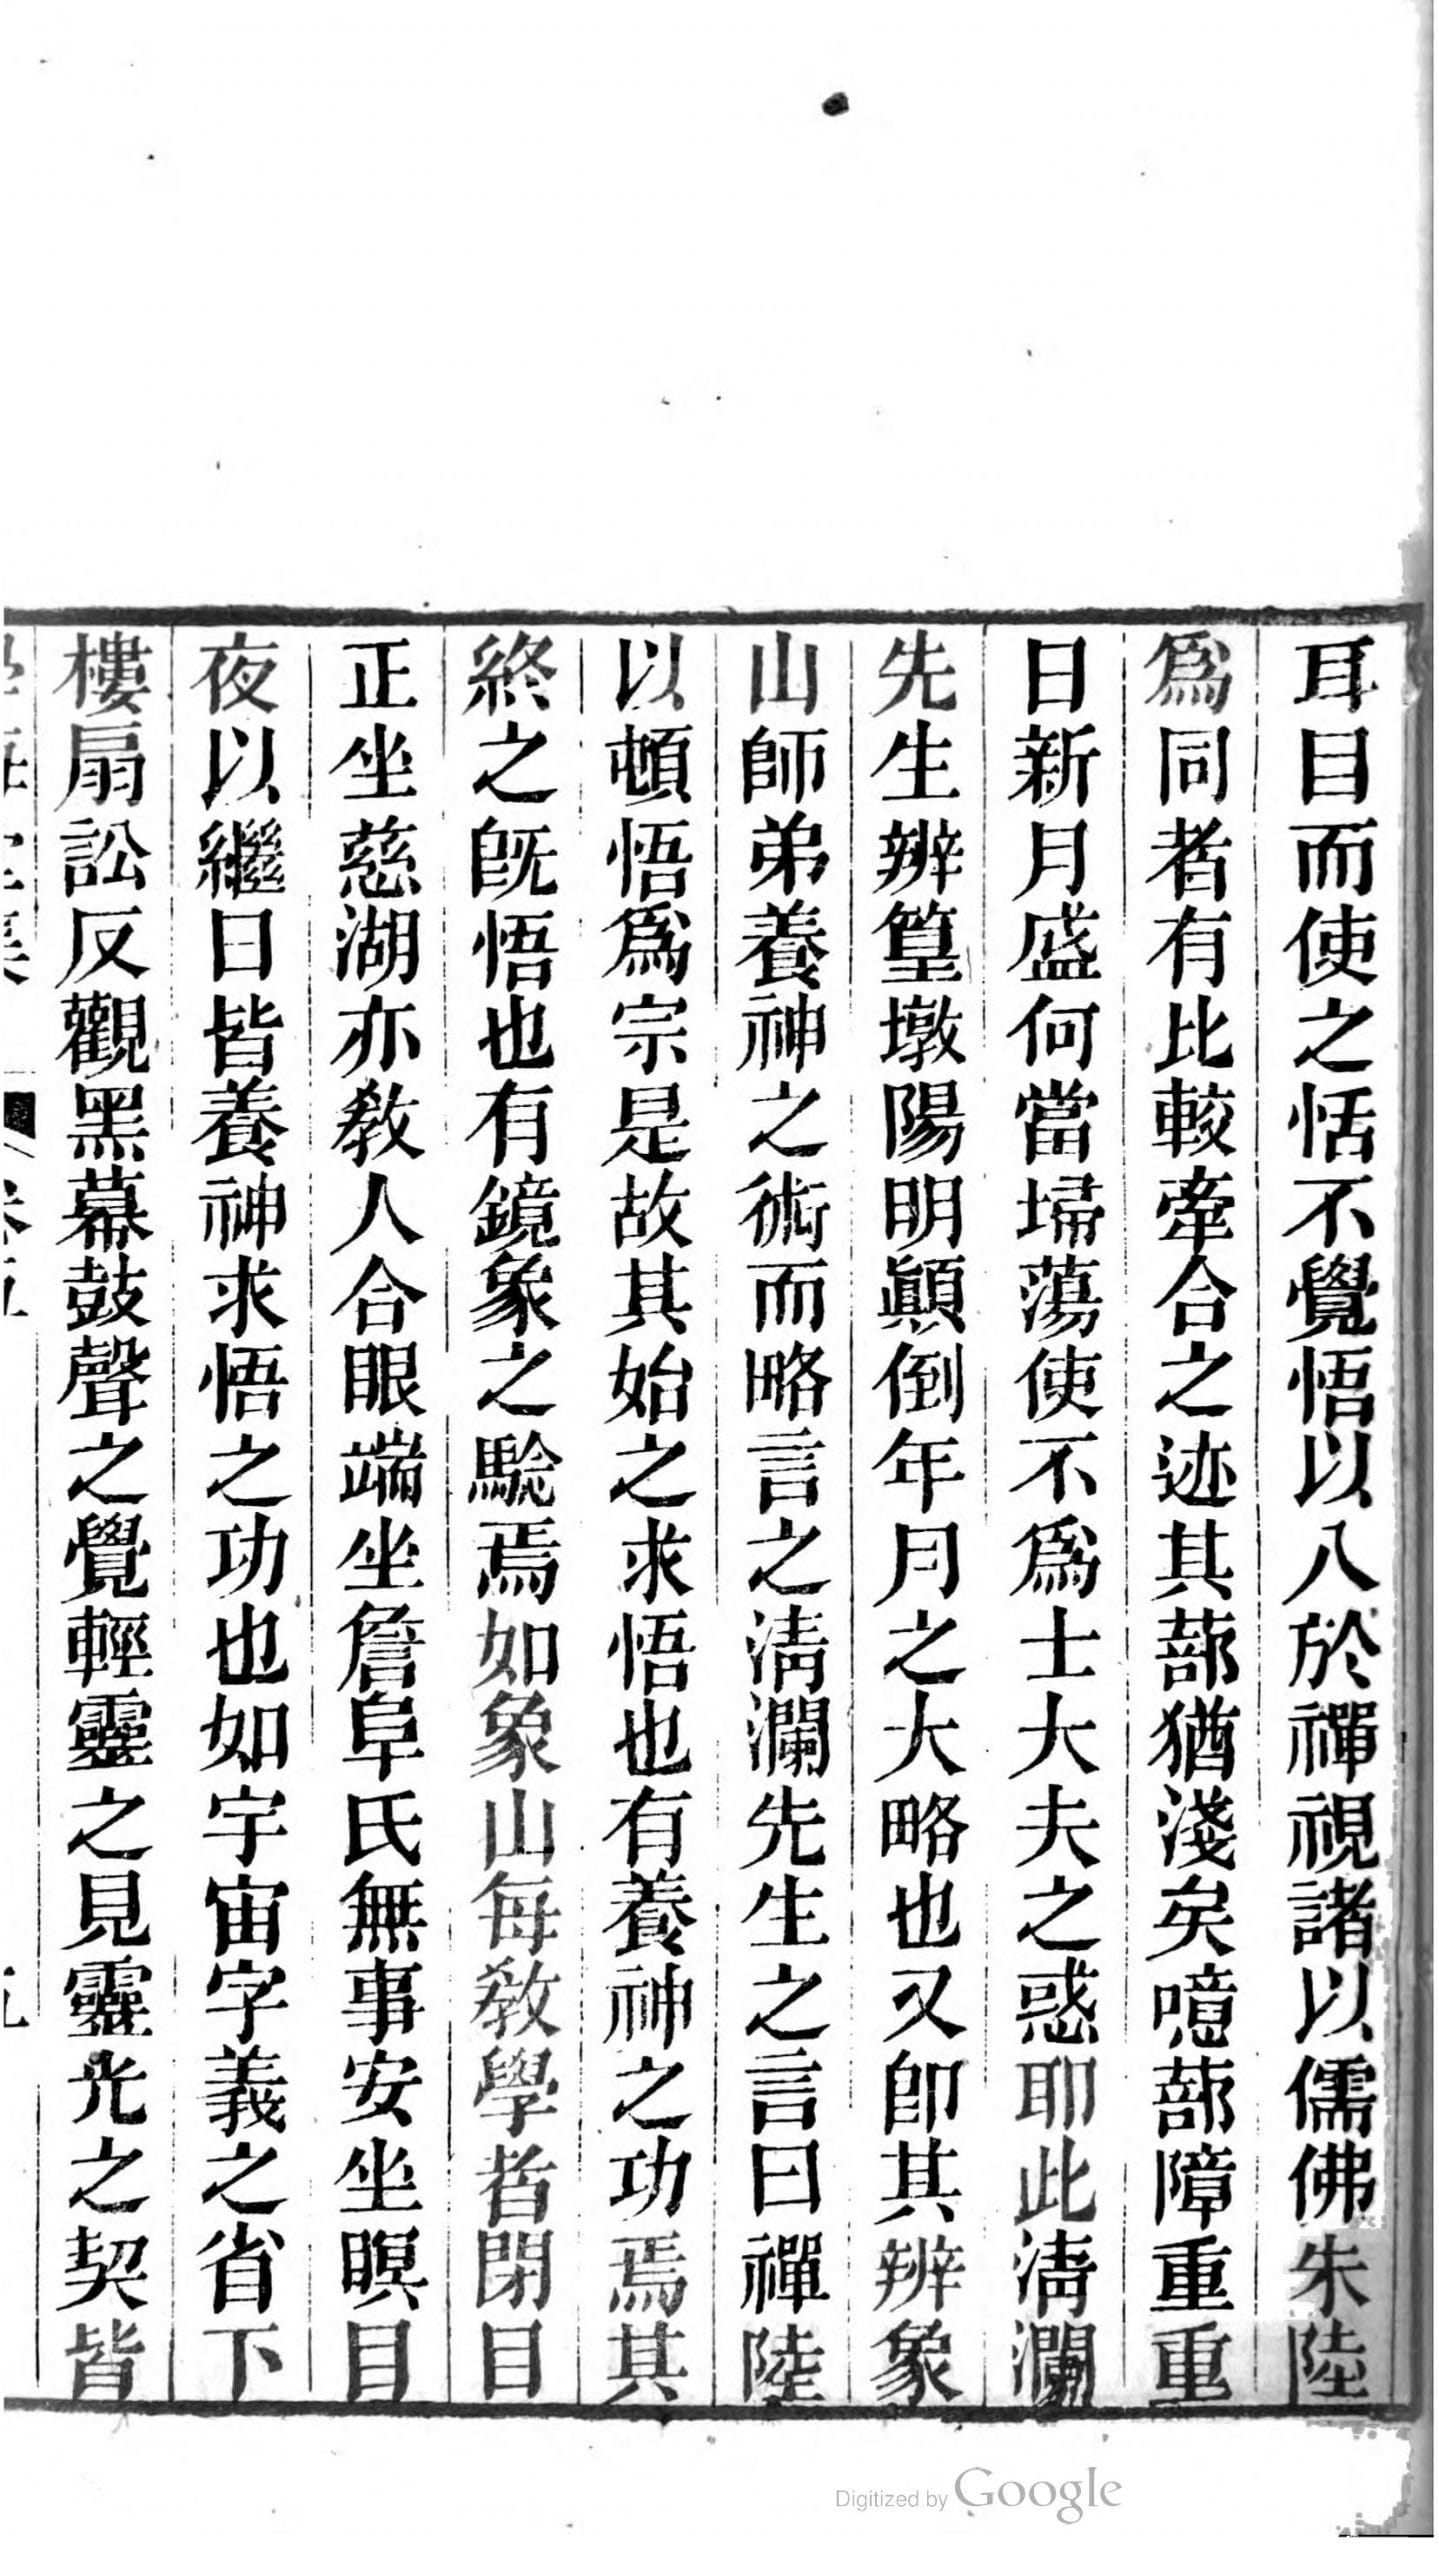 耳目而使之恬不覺悟以入於禪視諸以儒佛朱陸
爲同者有比較牽合之迹其蔀猶淺矣噫蔀障重重
日新月盛何當埽蕩使不爲士大夫之惑耶此淸瀾
先生辨篁墩陽明顚倒年月之大略也又卽其辨象
山師弟養神之術而略言之淸瀾先生之言曰禪陸
以頓悟爲宗是故其始之求悟也有養神之功焉其
終之旣悟也有鏡象之騐焉如象山每敎學者閉目
正坐慈湖亦敎人合眼端坐詹阜氏無事安坐瞑目
夜以繼日皆養神求悟之功也如宇宙字義之省下
樓扇訟反觀黑幕鼓聲之覺輕靈之見靈光之契皆
Digitized by Google